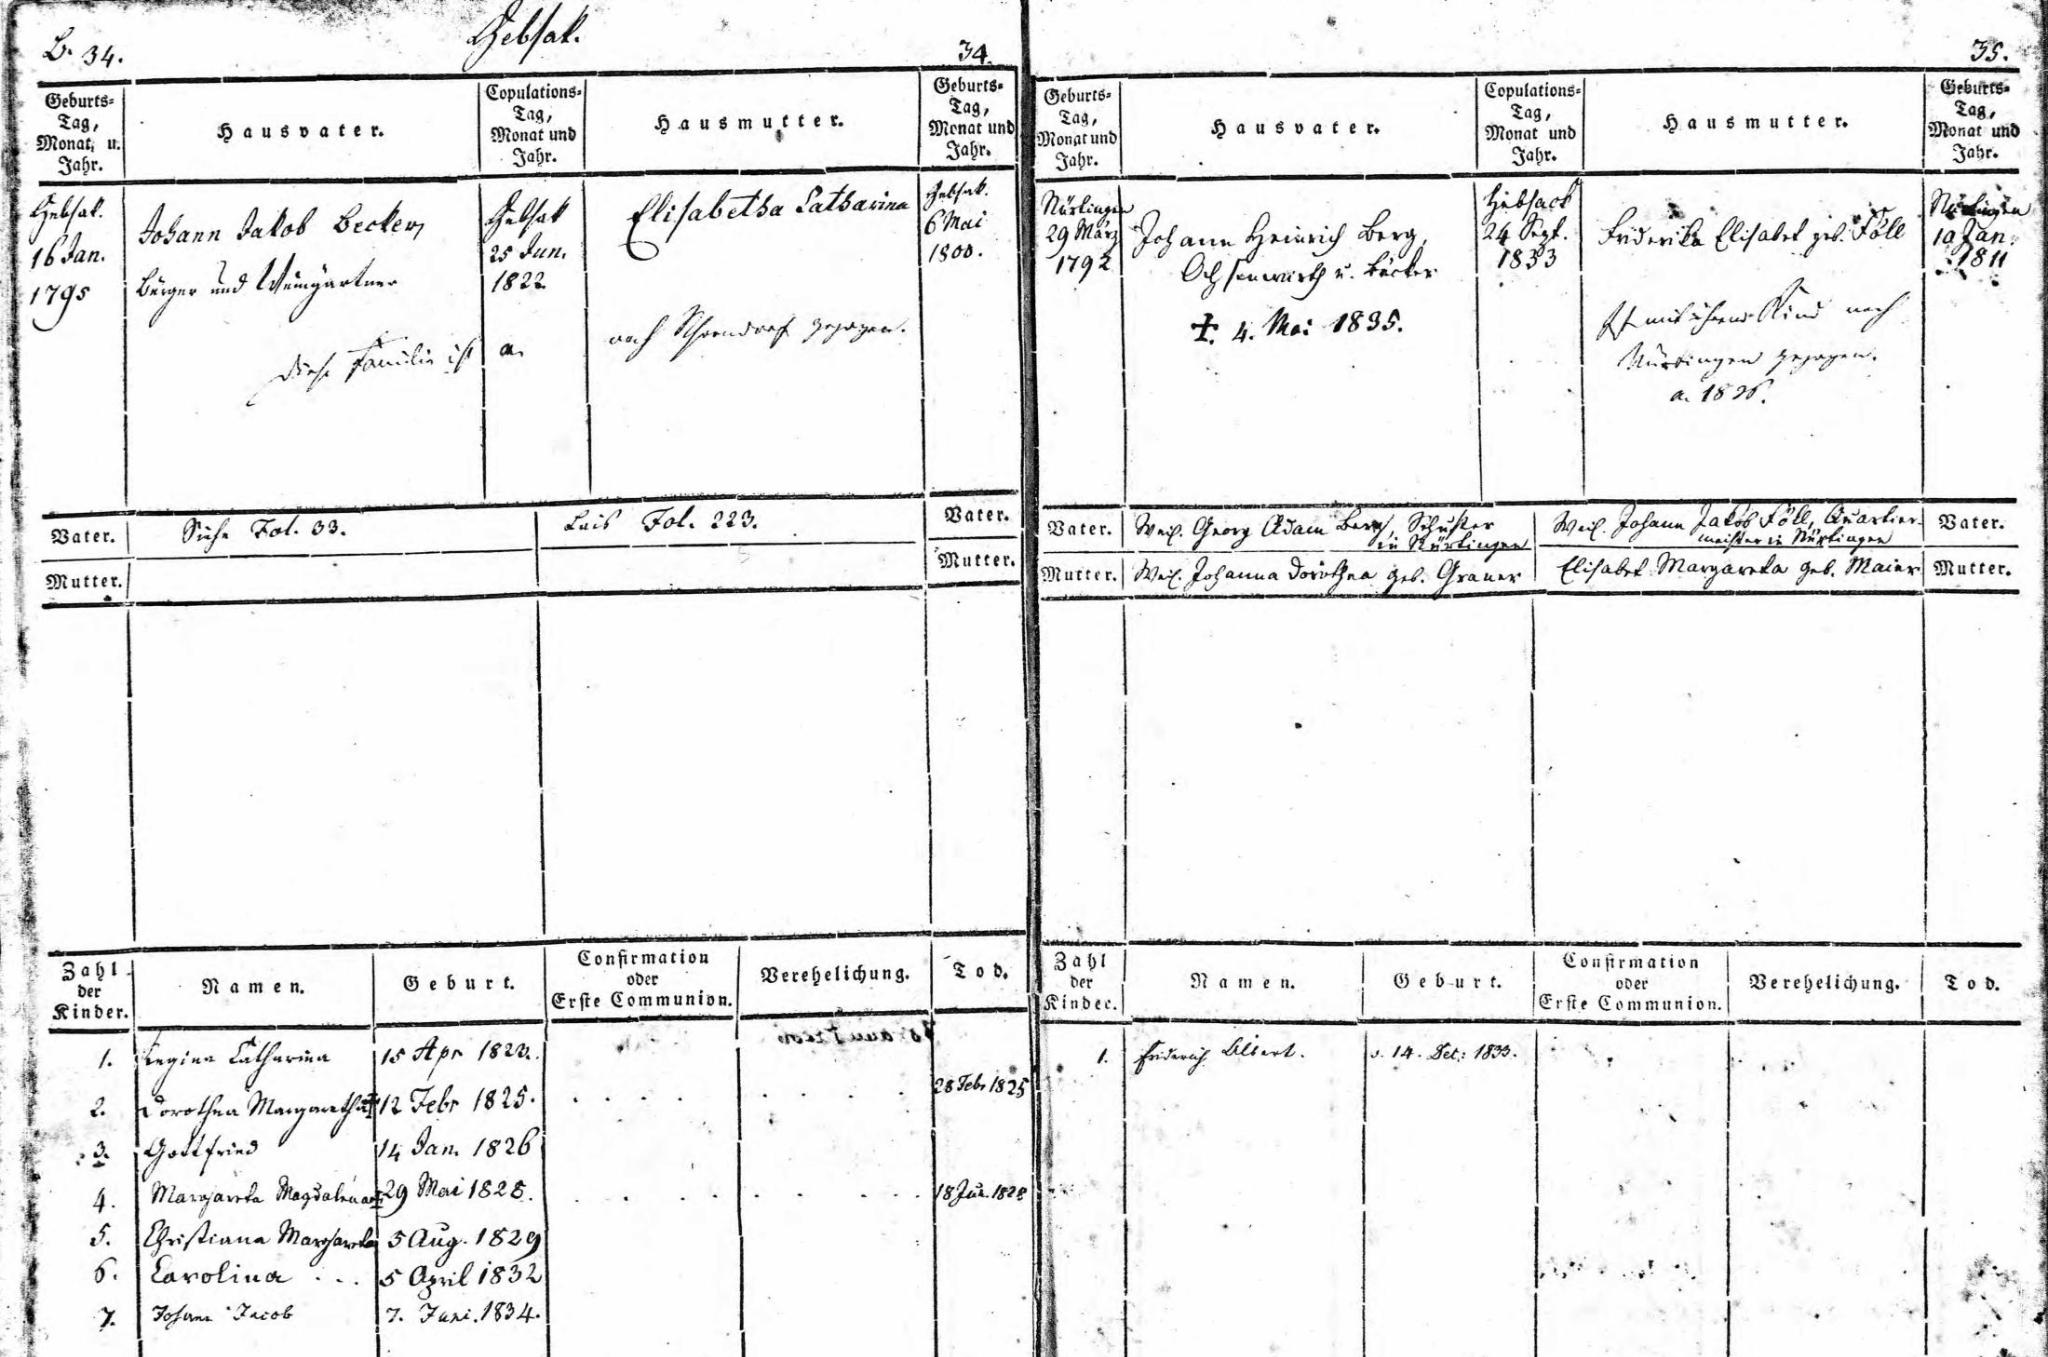 B. 34.
Hebsak.
34.
Geburts-
Tag,
Monat, u.
Jahr.
Hausvater.
Copulations-
Tag,
Monat und
Jahr.
Hausmutter.
Geburts-
Tag,
Monat und
Jahr.
Hebsak.
16 Jan.
1795
Johann Jakob Becker,
Bürger und Weingärtner
Hebsak
25 Jun.
1822
Elisabetha Catharina
Hebsak.
6 Mai
1800.
Diese Familie ist a. nach gezogen.
Vater.
Siehe Fol. 33.
Fol. 223.
Vater.
Mutter.
Mutter.
Zahl
der
Kinder.
Namen.
Geburt.
Confirmation
oder
Erste Communion.
Verehelichung.
Tod.
1. Regina Catharina 15 Apr 1823.
2. Dorothea Margaretha 12 Febr 1825. 28 Febr 1825
3. Gottfried 14 Jan. 1826
4. Margareta Magdalena 29 Mai 1828. 18 1828
5. Christiana Margareta 5 Aug. 1829
6. Carolina 5 April 1832
7. Johann Jacob 7. Juni. 1834.
35.
Geburts-
Tag,
Monat und
Jahr.
Hausvater.
Copulations-
Tag,
Monat und
Jahr.
Hausmutter.
Geburts-
Tag,
Monat und
Jahr.
Nürtingen
29 März
1792
Johann Heinrich Berg,
Ochsenwirth u. Bäcker
†. 4. Mai 1835.
Hebsack
24 Sept.
1833
Friderika Elisabet geb. Föll
Ist mit ihrem Kind nach
Nürtingen gezogen.
a. 1836.
Nürtingen
10 Jan.
1811
Vater.
Weil. Georg Adam Berg, Schuster
in Nürtingen
Weil. Johann Jakob Föll, Quartier-
meister in Nürtingen
Vater.
Mutter.
Weil. Johanna Dorothea geb. Graner
Elisabet Margareta geb. Maier
Mutter.
Zahl
der
Kinder.
Namen.
Geburt.
Confirmation
oder
Erste Communion.
Verehelichung.
Tod.
1. Friderich Albert. 14. Oct: 1833.